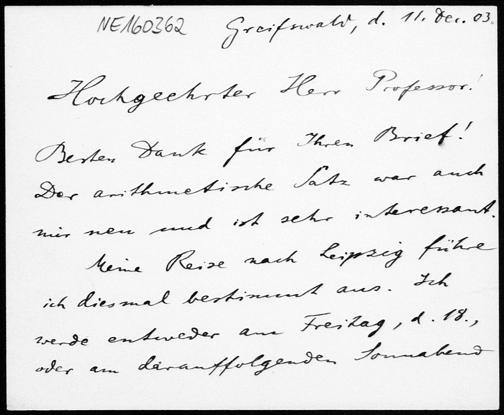 NE160362
Greifswald, d. 11. Dec. 03.
Hochgeehrter Herr Professor!
Besten Dank für Ihren Brief!
Der arithmetische Satz war auch
mir neu und ist sehr interessant.
Meine Reise nach Leipzig führe
ich diesmal bestimmt aus. Ich
werde entweder am Freitag, d. 18.,
oder am darauffolgenden Sonnabend